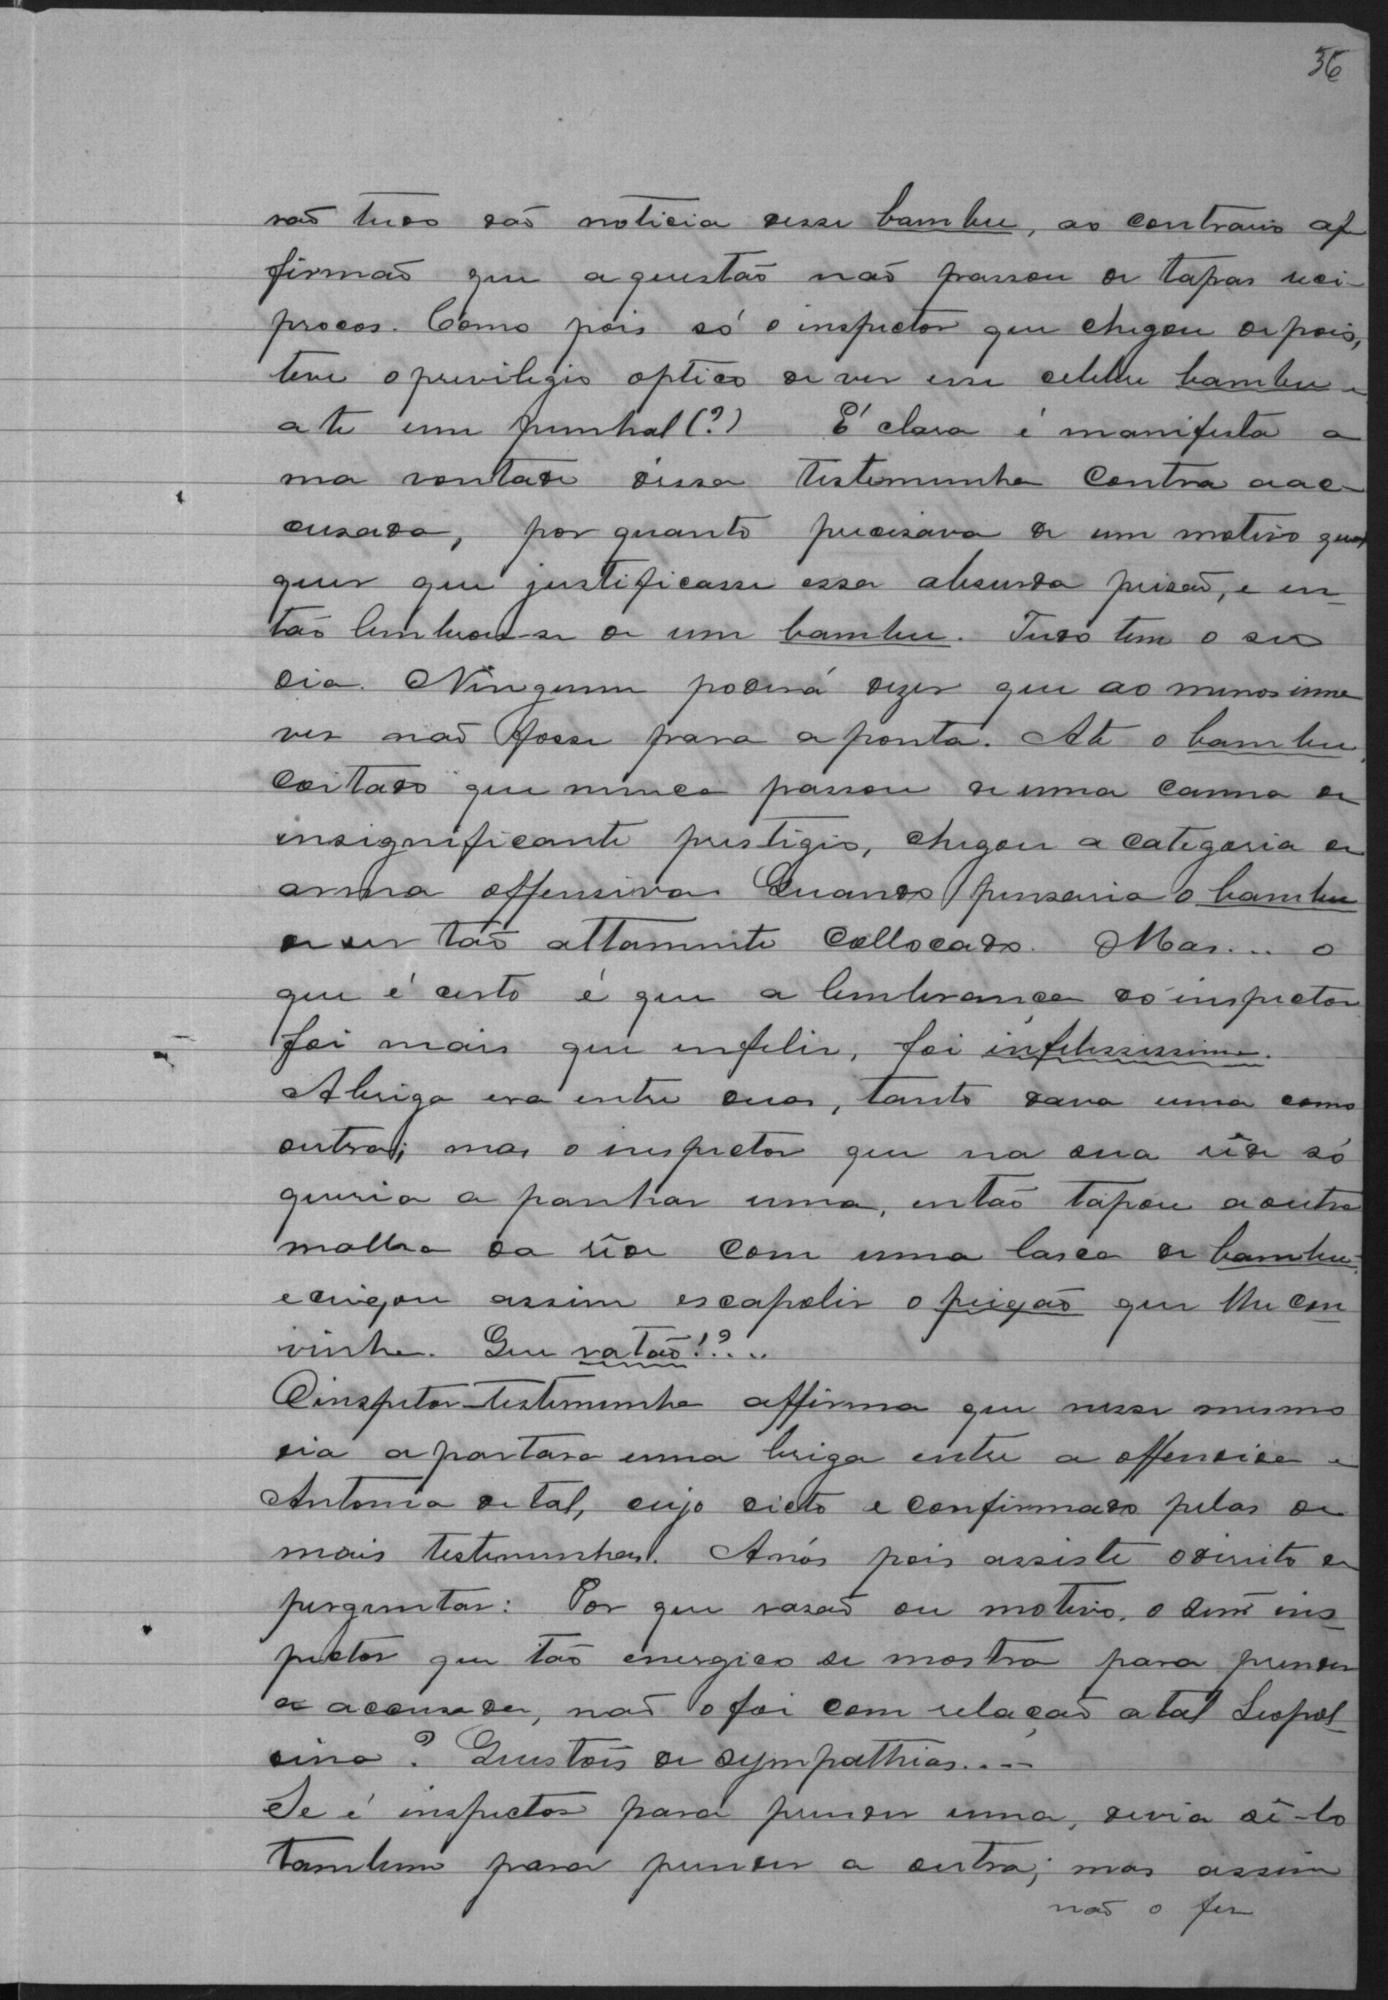 36
não tudo dão noticia desse bambu, ao contrario af
firmão que a questão não passou de tapas reci-
procos. Como pois só o inspector que chegou depois,
teve o previlegio optico de ver esse celebre bambu e
ate um punhal (?) É clara é manifesta a
ma vontade dessa testemunha contra a ac-
cusada, por quanto precisava de um motivo qual
quer que justificasse essa absurda prisão, e en-
tão lembrou-se de um bambu. Tudo tem o seu
dia. Ninguem poderá dizer que ao menos uma
vez não fosse para a ponta. Ate o bambu,
coitado que nunca passou de uma canna de
insignificante prestigio, chegou a categoria de
arma offensiva. Quando pensaria o bambu
de ser tão altamente collocado. Mas... o
que é certo é que a lembrança do inspector
foi mais que infeliz, foi infelissíssima.
A briga era entre duas, tanto dava uma como
outra; mas o inspector que na sua rêde só
queria a panhar uma, então tapou a outra
malha da rêde com uma lasca de bambu,
e deixou assim escapolir o peixão que lhe con
vinha. Que ratão!?...
O inspetor-testemunha affirma que nesse mesmo
dia apartara uma briga entre a offendida e
Antonia de tal, cujo dicto e confirmado pelas de
mais testemunhas. A nós pois assiste o direito de
perguntar: Por que rasão ou motivo, o dito ins-
pector que tão energico se mostra para prender
a accusada, não o foi com relação a tal Leopol-
dina? Questões de sympathias....
Se é inspector para prender uma, devia sê-lo
tambem para prender a outra; mas assim
não o fez